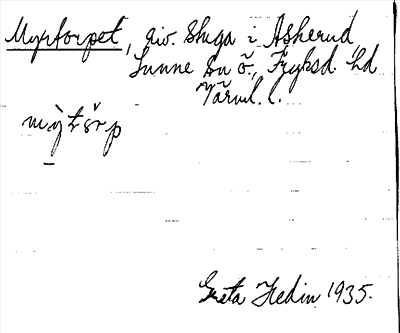 Myrtorpet, riv. stuga i Askerud
Sunne sn ö., Fryksd. hd
Värml. l.
Greta Hedin 1935.